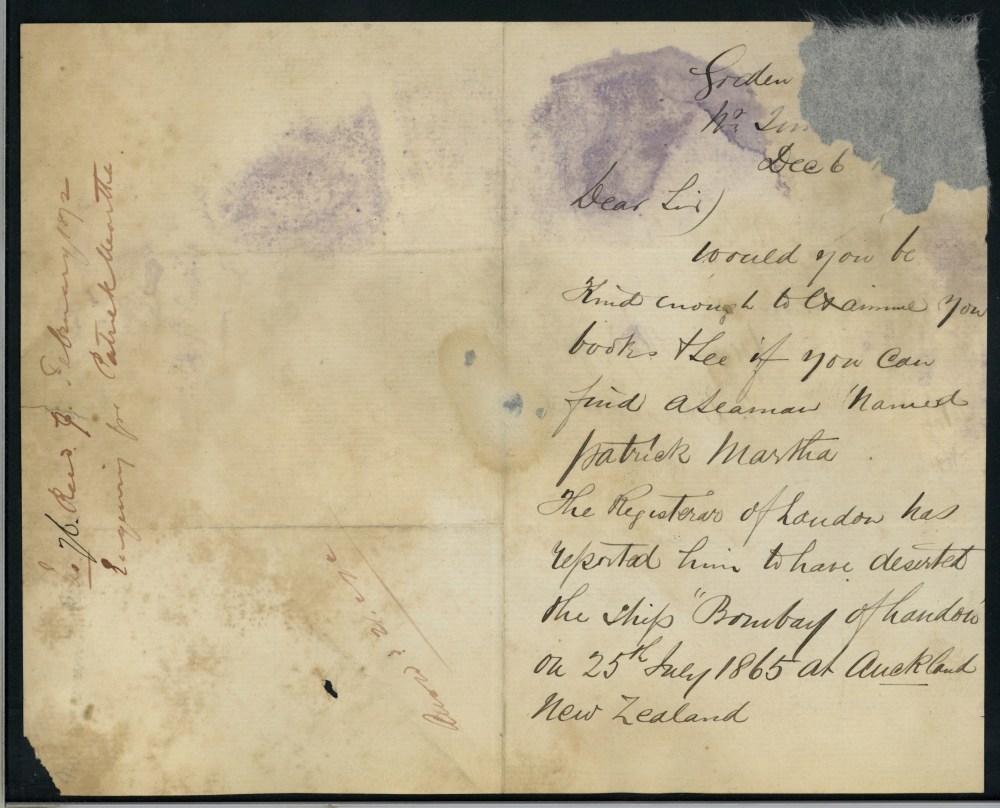 Dec 6
Dear Sir)
would you be
Kind enough to Examine you
books & See if you Can
find a Seaman Named
Patrick Martha
The Registerar of London has
reported him to have deserted
the Ship "Bombay of London"
on 25th July 1865 at Auckland
New Zealand
76. Recd 19 February 1872
Enquiring for Patrick Martha.